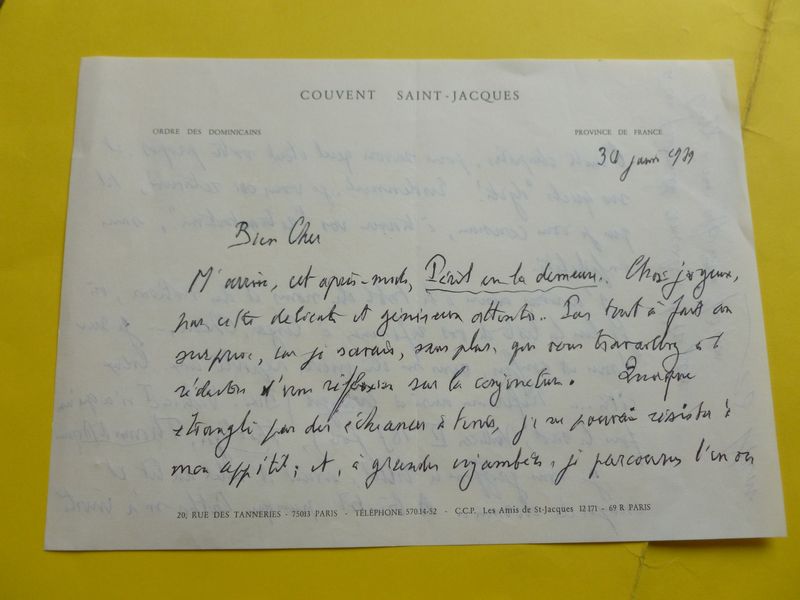 COUVENT SAINT-JACQUES
ORDRE DES DOMINICAINS
PROVINCE DE FRANCE
30 janv 1979
Bien Cher
M'arrive, cet après-midi, Péril en la demeure. Chose joyeuse,
par cette délicate et généreuse attention. Pas tout à fait une
surprise, car je savais, sans plus, que vous travailliez à la
rédaction d'une réflexion sur la conjoncture. Quoique
étranglé par des échéances à tenir, je ne pouvais résister à
mon appétit; et, à grandes enjambées, je parcourus l'un ou
20, RUE DES TANNERIES - 75013 PARIS - TÉLÉPHONE 570.14-52 - C.C.P. Les Amis de St-Jacques 12 171 - 69 R PARIS